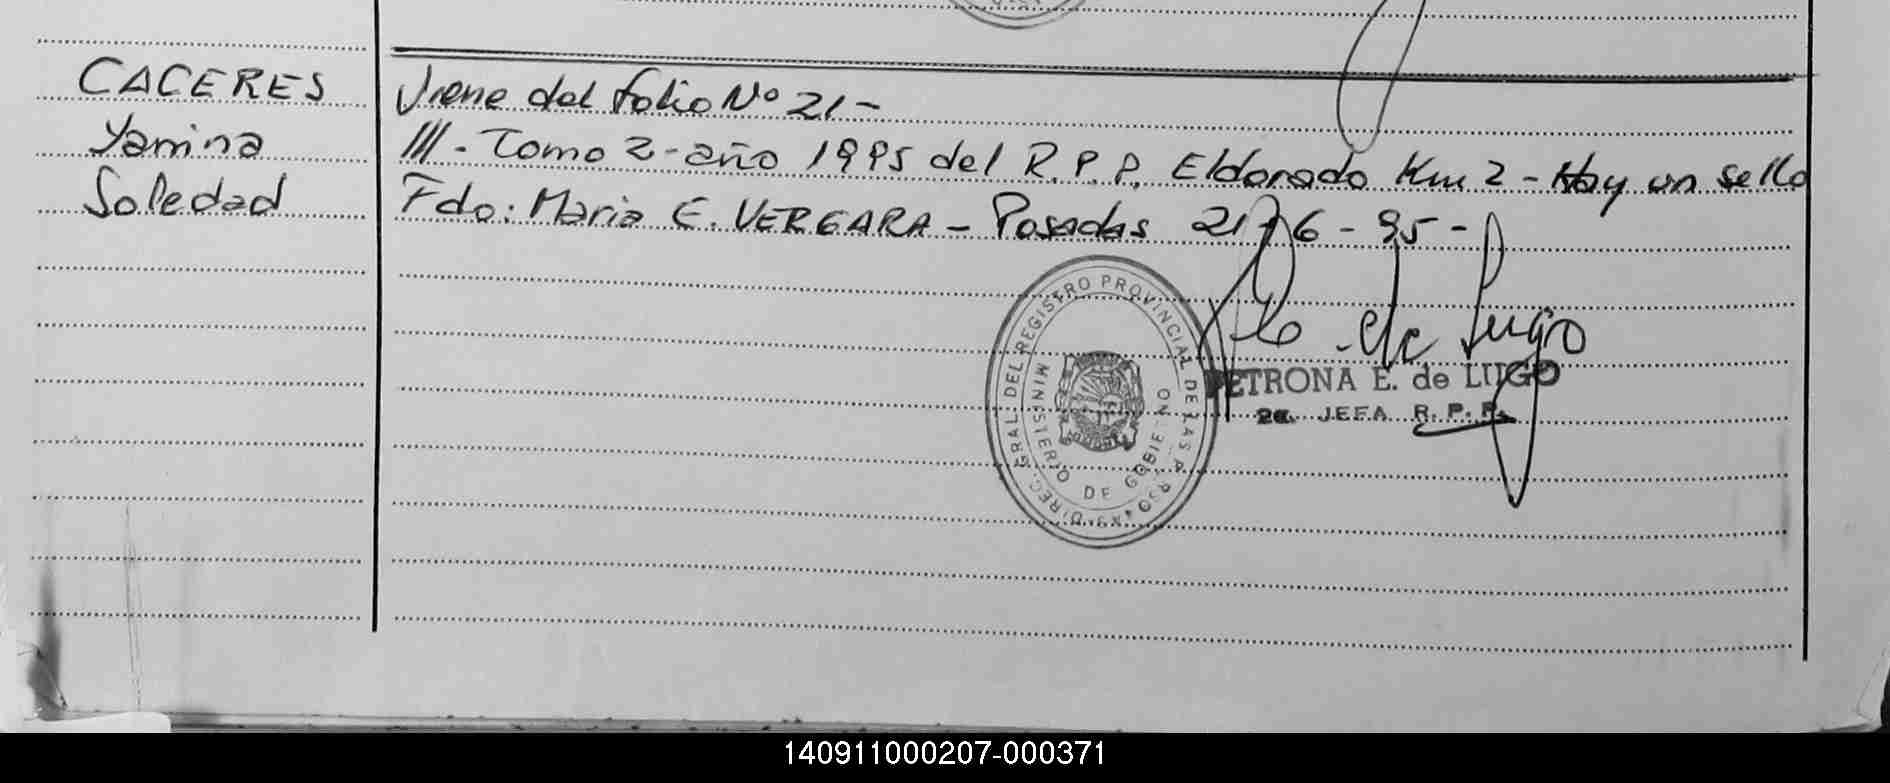 CACERES
Yamina
Soledad
Viene del folio Nº 21-
III. Tomo 2 - año 1995 del R.P.P. Eldorado Km 2 - Hay un sello
Fdo: Maria E. VERGARA - Posadas 21-6-95-
DIREC. GRAL. DEL REGISTRO PROVINCIAL DE LAS P
MINISTERIO DE GOBIERNO
PETRONA E. de LUGO
2a. JEFA R. P. P.
140911000207-000371